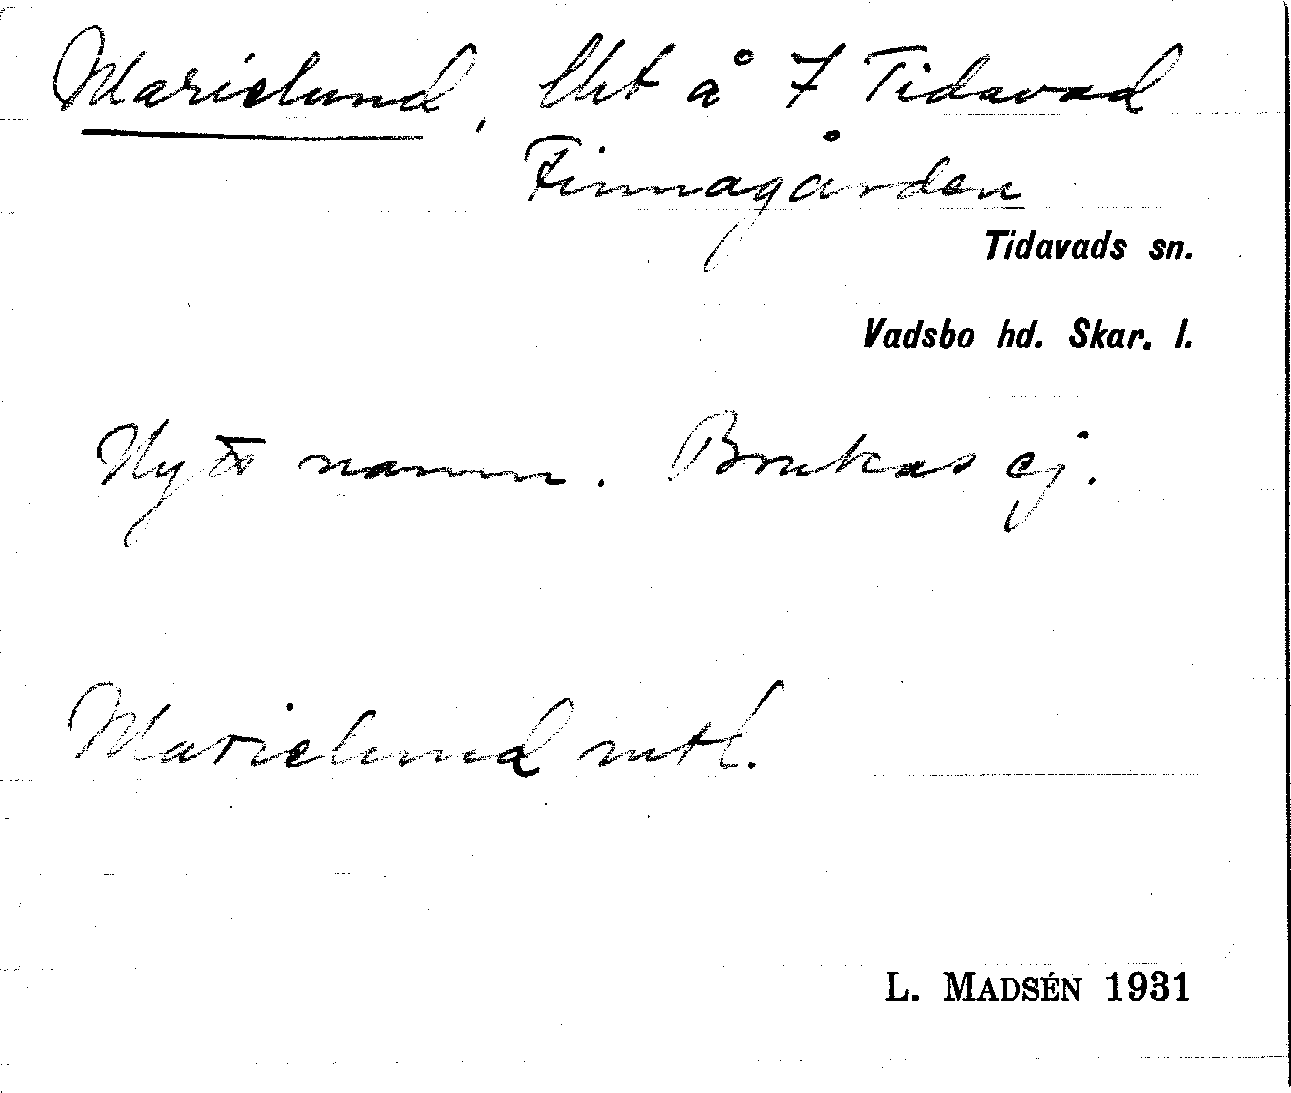 Marielund, lht å 7 Tidavad
Finnagården
Tidavads sn.
Vadsbo hd. Skar. l.
Nytt namn. Brukas ej.
Marielund mtl.
L. MADSÉN 1931